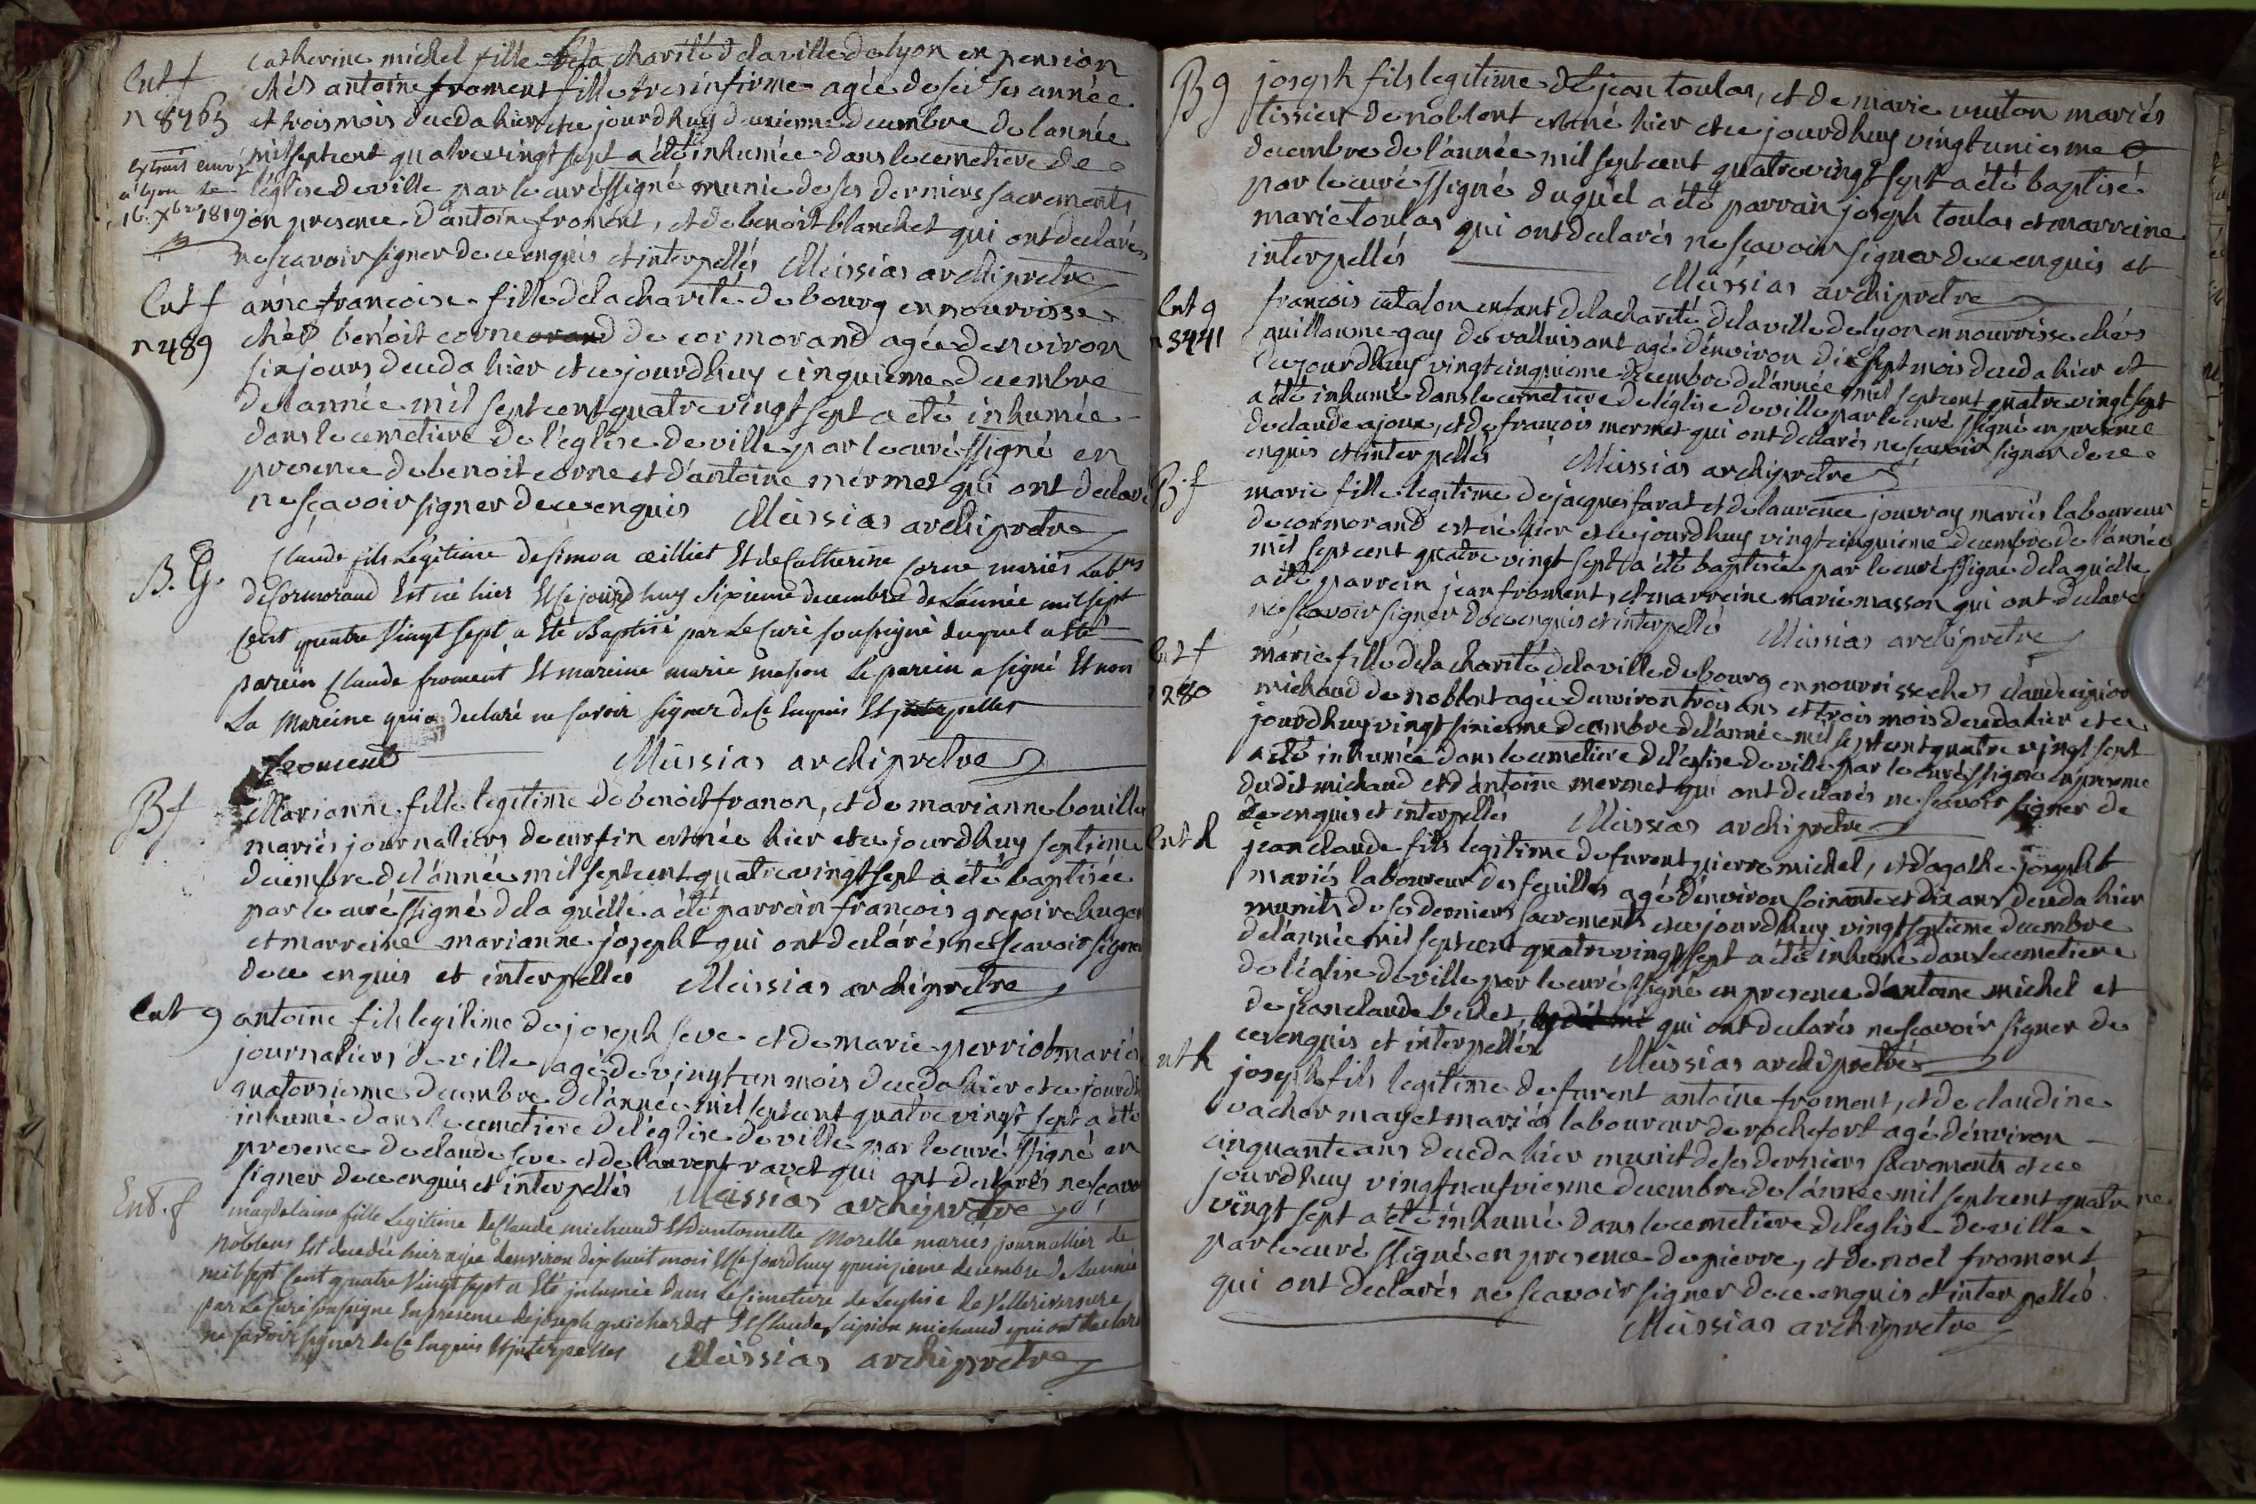 Ent f
n 8463
extrait envoyé
a lyon le
16. Xbre 1819
catherine michel fille de la charité de la ville de lyon en pension
chés antoine froment fille tres infirme agée de seises année
et trois mois decedा hier et ce jourdhuy deuxieme decembre de lannée
mil sept cent quatre vingt sept a été inhumée dans le cemetiere de
l'église de ville par le curé ssigné munie de ses derniers sacrements
en presence d'antoine froment, et de benoit blanchet qui ont declarés
ne scavoir signer de ce enquis et interpellés Meissias archipretre
Ent f
n 489
anne francoise fille de la charité de bourg en nourrisse
chés benoit corne de cormorand agée denviron
six jours deceda hier et ce jourdhuy cinquieme decembre
de lannée mil sept cent quatre vingt sept a été inhumée
dans le cemetiere de l'église de ville par le curé ssigné en
presence de benoit corne et d'antoine mermet qui ont declaré
ne scavoir signer de ce enquis Meissias archipretre
B. G.
Claude fils Légitime de simon œilliet Et de Catherine corne mariés Labrs
de Cormorand Est né hier Et Ce jourd'huy sixieme decembre de L'année mil sept
Cent quatre Vingt sept a Eté Baptisé par Le Curé soussigné duquel a Eté
parein Claude froment Et mareine marie masson Le parein a signé Et non
La Mareine qui a declaré ne savoir signer de Ce Enquis Et interpelles
froment Meissias archipretre
B f
Marianne fille legitime de benoit franon, et de marianne bouillet
mariés journaliers de curfin est née hier et ce jourdhuy septieme
decembre de l'année mil sept cent quatre vingt sept a été baptisée
par le curé ssigné de la quelle a été parrain francois gregoire hugon
et marreine marianne josepht qui ont declarés ne scavoir signer
de ce enquis et interpellés Meissias archipretre
Ent g
antoine fils legitime de joseph seve et de marie perriot mariés
journaliers de ville agé de vingt un mois deceda hier et ce jourdh
quatorsieme decembre de l'année mil sept cent quatre vingt sept a été
inhumé dans le cemetiere de l'église de ville par le curé ssigné en
presence de claude seve et de laurent ravet qui ont declarés ne scavo
signer de ce enquis et interpellés Meissias archipretre
Ent. f
magdelaine fille Légitime de Claude michaud Et D'antoinette Morelle maries journallier de
noblens Est decedée hier agée denviron dix huit mois Et Ce jourdhuy quinzieme decembre de L'année
mil sept Cent quatre Vingt sept a Eté inhumée Dans Le Cimetiere de Leglise de Villereversure
par Le Curé soussigné En presence de joseph guichardet Et Claude scipion michaud qui ont declaré
ne savoir signer de Ce Enquis Et interpelles Meissias archipretre
B g
joseph fils legitime de jean toulas, et de marie vuiton mariés
tissier de noblent est né hier et ce jourdhuy vingt unieme
decembre de l'année mil sept cent quatre vingt sept a été baptisé
par le curé ssigné duquel a été parrain joseph toulas et marreine
marie toulas qui ont declarés ne scavoir signer de ce enquis et
interpellés Meissias archipretre
Ent g
n 3441
francois catalon enfant de la charité de la ville de lyon en nourrisse chés
guillaume gay de valluisant agé d'environ dix sept mois deceda hier et
ce jourdhuy vingt cinquieme decembre de l'année mil sept cent quatre vingt sept
a été inhumé dans le cemetiere de l'église de ville par le curé ssigné en presence
de claude ajoux, et de francois mermet qui ont declarés ne scavoir signer de ce
enquis et interpellés Meissias archipretre
B. f
marie fille legitime de jacques farat et de laurence jouvray mariés laboureur
de cormorand est né hier et ce jourdhuy vingt cinquieme decembre de l'année
mil sept cent quatre vingt sept a été baptisée par le curé ssigné de la quelle
a été parrein jean froment, et marreine marie masson qui ont declaré
ne scavoir signer de ce enquis et interpellés Meissias archipretre
Ent f
n 280
marie fille de la charité de la ville de bourg en nourrisse chés claude cipion
michaud de noblent agée denviron trois ans et trois mois deceda hier et ce
jourdhuy vingt sixieme decembre de l'année mil sept cent quatre vingt sept
a été inhumée dans le cemetiere de l'eglise de ville par le curé ssigné en presence
dudit michaud et d'antoine mermet qui ont declarés ne scavoir signer de
ce enquis et interpellés Meissias archipretre
Ent h
jean claude fils legitime de furent pierre michel, et d'agathe josepht
mariés laboureur des feuilles agé d'environ soixante et dix ans deceda hier
munit de ses derniers sacrements et ce jourdhuy vingt septieme decembre
de l'année mil sept cent quatre vingt sept a été inhumé dans le cemetiere
de l'église de ville par le curé ssigné en presence d'antoine michel et
de jean claude bichet qui ont declarés ne scavoir signer de
ce enquis et interpellés Meissias archipretre
nt h
joseph fils legitime de furent antoine froment, et de claudine
vacher mayet mariés laboureur de rochefort agé d'environ
cinquante ans deceda hier munit de ses derniers sacrements et ce
jourdhuy vingt neufviesme decembre de l'année mil sept cent quatre
vingt sept a été inhumé dans le cemetiere de l'eglise de ville
par le curé ssigné en presence de pierre, et de noel froment
qui ont declarés ne scavoir signer de ce enquis et interpellés
Meissias archipretre